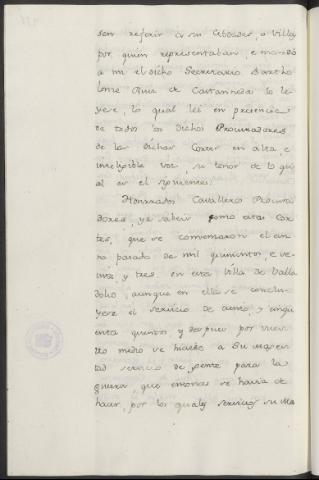 son referir a sus Cibdades, o Villas
por quien representaban, e mandó
a mi el dicho Secretario Bartho
lome Ruiz de Castannieda lo le
yere, lo qual lei en presencia
de todos los dichos Procuradores
de las dichas Cortes en alta, e
inteligible voz, su tenor de lo qu
al es el siguiente:
Honrrados Cavalleros Procura
dores, ya sabeis como estas Cor
tes, que se comenzaron el an
no pasado de mil quinientos, e ve
inte, y tres en esta Villa de Valla
dolid, aunque en ella se conclu
yese el servicio de ciento, y cinqu
enta quentos, y despues por vues
tro medio se hiciese a Su Mages
tad servicio de gente para la
guerra, que entonces se havia de
hacer, por los quales servicios su Ma